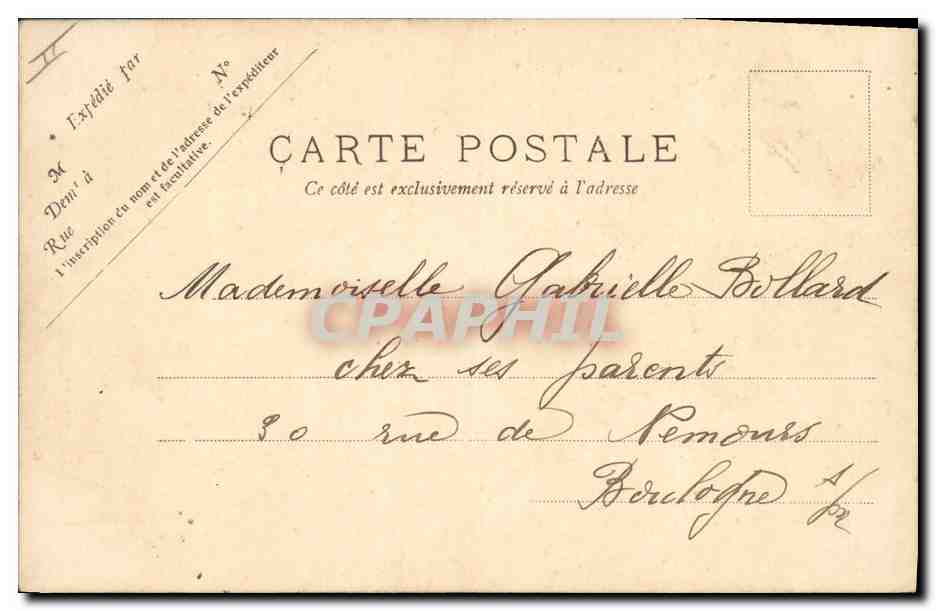 II
Expédié par
N°
M
Demt à
Rue
L'inscription du nom et de l'adresse de l'expéditeur
est facultative.
CARTE POSTALE
Ce côté est exclusivement réservé à l'adresse
Mademoiselle Gabrielle Bollard
CPAPHIL
chez ses parents
30 rue de Nemours
Boulogne s/m